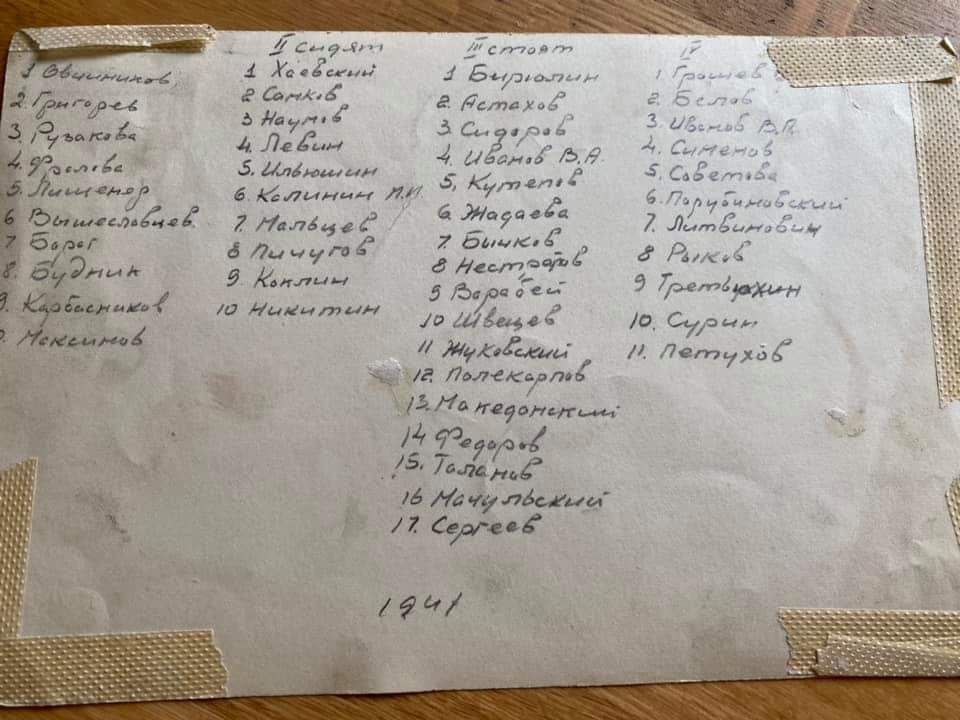 1 Овчинников,
2 Григорев
3. Рузакова
4. Фролова
5. Лищенор
6 Вышеславцев.
7 Борог
8. Будник
9. Карбасников
Максимов
II сидят
1 Хаевский
2 Санков
3 Наумов
4. Левин
5. Илюшин
6. Калинин П.И.
7. Мальцев
8 Пичугов
9. Коклин
10 Никитин
III стоят
1 Бирюлин
2. Астахов
3. Сидоров
4. Иванов В.А.
5, Кутепов
6. Жадаева
7. Бычков
8 Нестратов
9 Варабей
10 Швецев
11 Жуковский
12. Полекарпов
13. Македонский
14 Федоров
15. Таланов
16 Мачульский
17. Сергеев
IV
1. Грошев
2. Белов
3. Иванов В.П.
4. Сименов
5. Советова
6. Парубиновский
7. Литвинович
8 Рыков
9 Третьюхин
10. Сурин
11. Петухов
1941